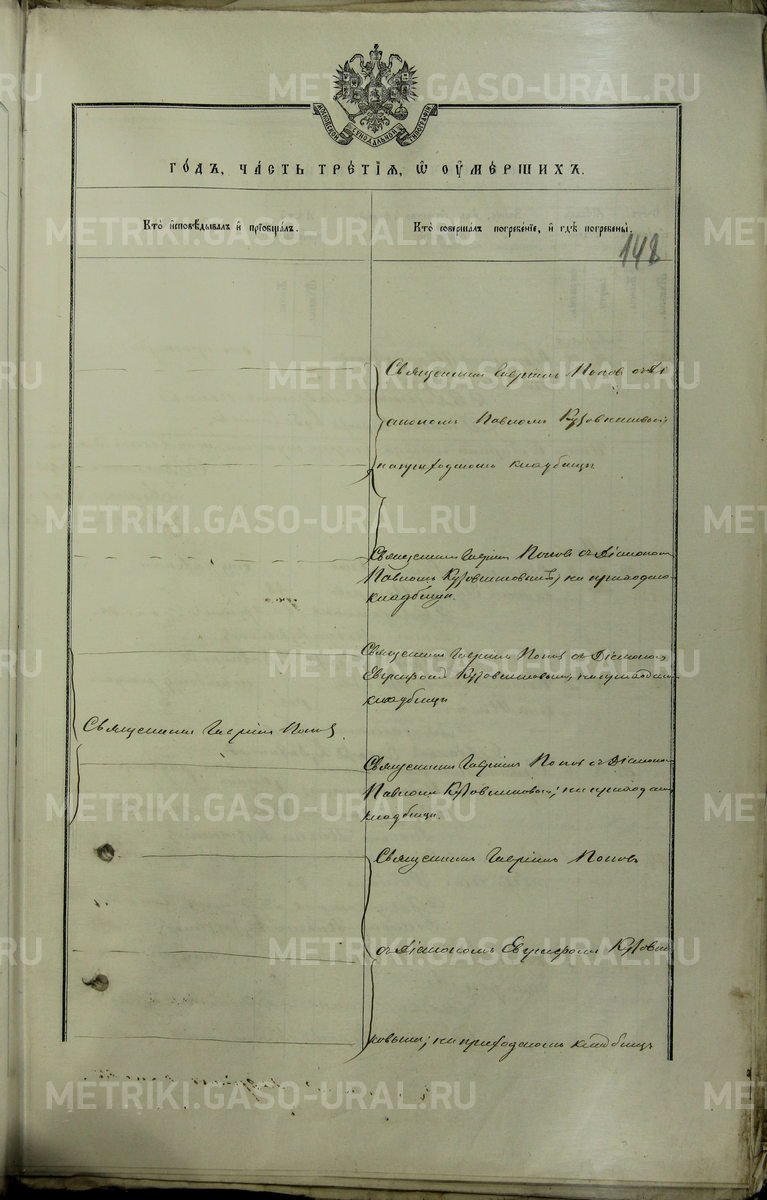 METRIKI.GASO-URAL.RU
МОСКОВСКОЙ СѴНОДАЛЬНОЙ ТИПОГРАФІИ
ГОДЪ, ЧАСТЬ ТРЕТІЯ, Ѡ ОУМЕРШИХЪ.
Кто исповѣдывалъ и пріобщалъ.
Кто совершалъ погребеніе, и гдѣ погребены.
148
Священникъ Гавріилъ Поповъ съ Ді
акономъ Павломъ Кузовниковымъ
на приходскомъ кладбищѣ
Священникъ Гавріилъ Поповъ съ Діакономъ
Павломъ Кузовниковымъ, на приходскомъ
кладбищѣ.
Священникъ Гавріилъ Поповъ съ Діакономъ
Кузовниковымъ, на приходскомъ
кладбищѣ
Священникъ Гавріилъ Поповъ.
Священникъ Гавріилъ Поповъ съ Діакономъ
Павломъ Кузовниковымъ; на приходскомъ
кладбищѣ.
Священникъ Гавріилъ Поповъ
съ Діакономъ Кузовни
ковымъ; на приходскомъ кладбищѣ